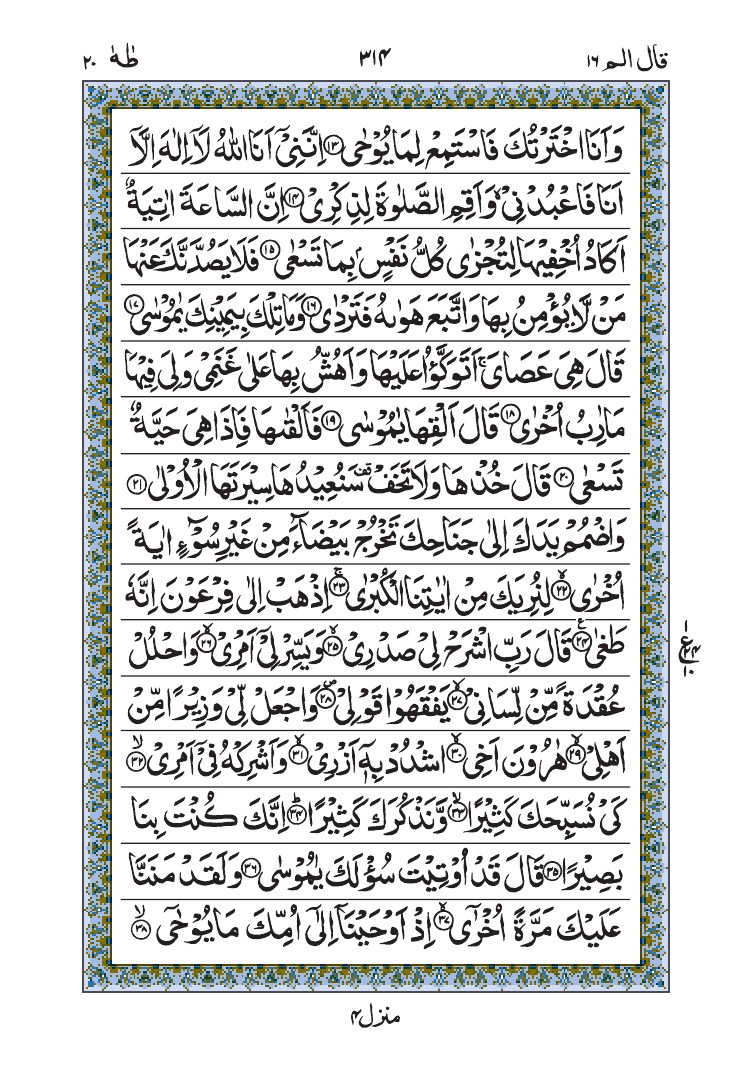 قال الم ١٦ ٣١٤ طٰهٰ ٢٠
وَاَنَا اخْتَرْتُكَ فَاسْتَمِعْ لِمَا يُوْحٰى ﴿۱۳﴾ اِنَّنِیْۤ اَنَا اللّٰهُ لَاۤ اِلٰهَ اِلَّاۤ
اَنَا فَاعْبُدْنِیْ ۙ وَاَقِمِ الصَّلٰوةَ لِذِكْرِیْ ﴿۱۴﴾ اِنَّ السَّاعَةَ اٰتِیَةٌ
اَكَادُ اُخْفِیْهَا لِتُجْزٰى كُلُّ نَفْسٍۭ بِمَا تَسْعٰى ﴿۱۵﴾ فَلَا یَصُدَّنَّكَ عَنْهَا
مَنْ لَّا یُؤْمِنُ بِهَا وَاتَّبَعَ هَوٰىهُ فَتَرْدٰى ﴿۱۶﴾ وَمَا تِلْكَ بِیَمِیْنِكَ یٰمُوْسٰى ﴿۱۷﴾
قَالَ هِیَ عَصَایَ ۚ اَتَوَكَّؤُا عَلَیْهَا وَاَهُشُّ بِهَا عَلٰى غَنَمِیْ وَلِیَ فِیْهَا
مَاٰرِبُ اُخْرٰى ﴿۱۸﴾ قَالَ اَلْقِهَا یٰمُوْسٰى ﴿۱۹﴾ فَاَلْقٰىهَا فَاِذَا هِیَ حَیَّةٌ
تَسْعٰى ﴿۲۰﴾ قَالَ خُذْهَا وَلَا تَخَفْ ۥ سَنُعِیْدُهَا سِیْرَتَهَا الْاُوْلٰى ﴿۲۱﴾
وَاضْمُمْ یَدَكَ اِلٰى جَنَاحِكَ تَخْرُجْ بَیْضَآءَ مِنْ غَیْرِ سُوْٓءٍ اٰیَةً
اُخْرٰى ﴿۲۲﴾ لِنُرِیَكَ مِنْ اٰیٰتِنَا الْكُبْرٰى ﴿۲۳﴾ اِذْهَبْ اِلٰى فِرْعَوْنَ اِنَّهٗ
طَغٰى ﴿۲۴﴾ قَالَ رَبِّ اشْرَحْ لِیْ صَدْرِیْ ﴿۲۵﴾ وَیَسِّرْ لِیْۤ اَمْرِیْ ﴿۲۶﴾ وَاحْلُلْ
عُقْدَةً مِّنْ لِّسَانِیْ ﴿۲۷﴾ یَفْقَهُوْا قَوْلِیْ ﴿۲۸﴾ وَاجْعَلْ لِّیْ وَزِیْرًا مِّنْ
اَهْلِیْ ﴿۲۹﴾ هٰرُوْنَ اَخِی ﴿۳۰﴾ اشْدُدْ بِهٖۤ اَزْرِیْ ﴿۳۱﴾ وَاَشْرِكْهُ فِیْۤ اَمْرِیْ ﴿۳۲﴾
كَیْ نُسَبِّحَكَ كَثِیْرًا ﴿۳۳﴾ وَّنَذْكُرَكَ كَثِیْرًا ﴿۳۴﴾ اِنَّكَ كُنْتَ بِنَا
بَصِیْرًا ﴿۳۵﴾ قَالَ قَدْ اُوْتِیْتَ سُؤْلَكَ یٰمُوْسٰى ﴿۳۶﴾ وَلَقَدْ مَنَنَّا
عَلَیْكَ مَرَّةً اُخْرٰۤى ﴿۳۷﴾ اِذْ اَوْحَیْنَاۤ اِلٰۤى اُمِّكَ مَا یُوْحٰۤى ﴿۳۸﴾
۱
ع ۲۴
۱۰
منزل ۴